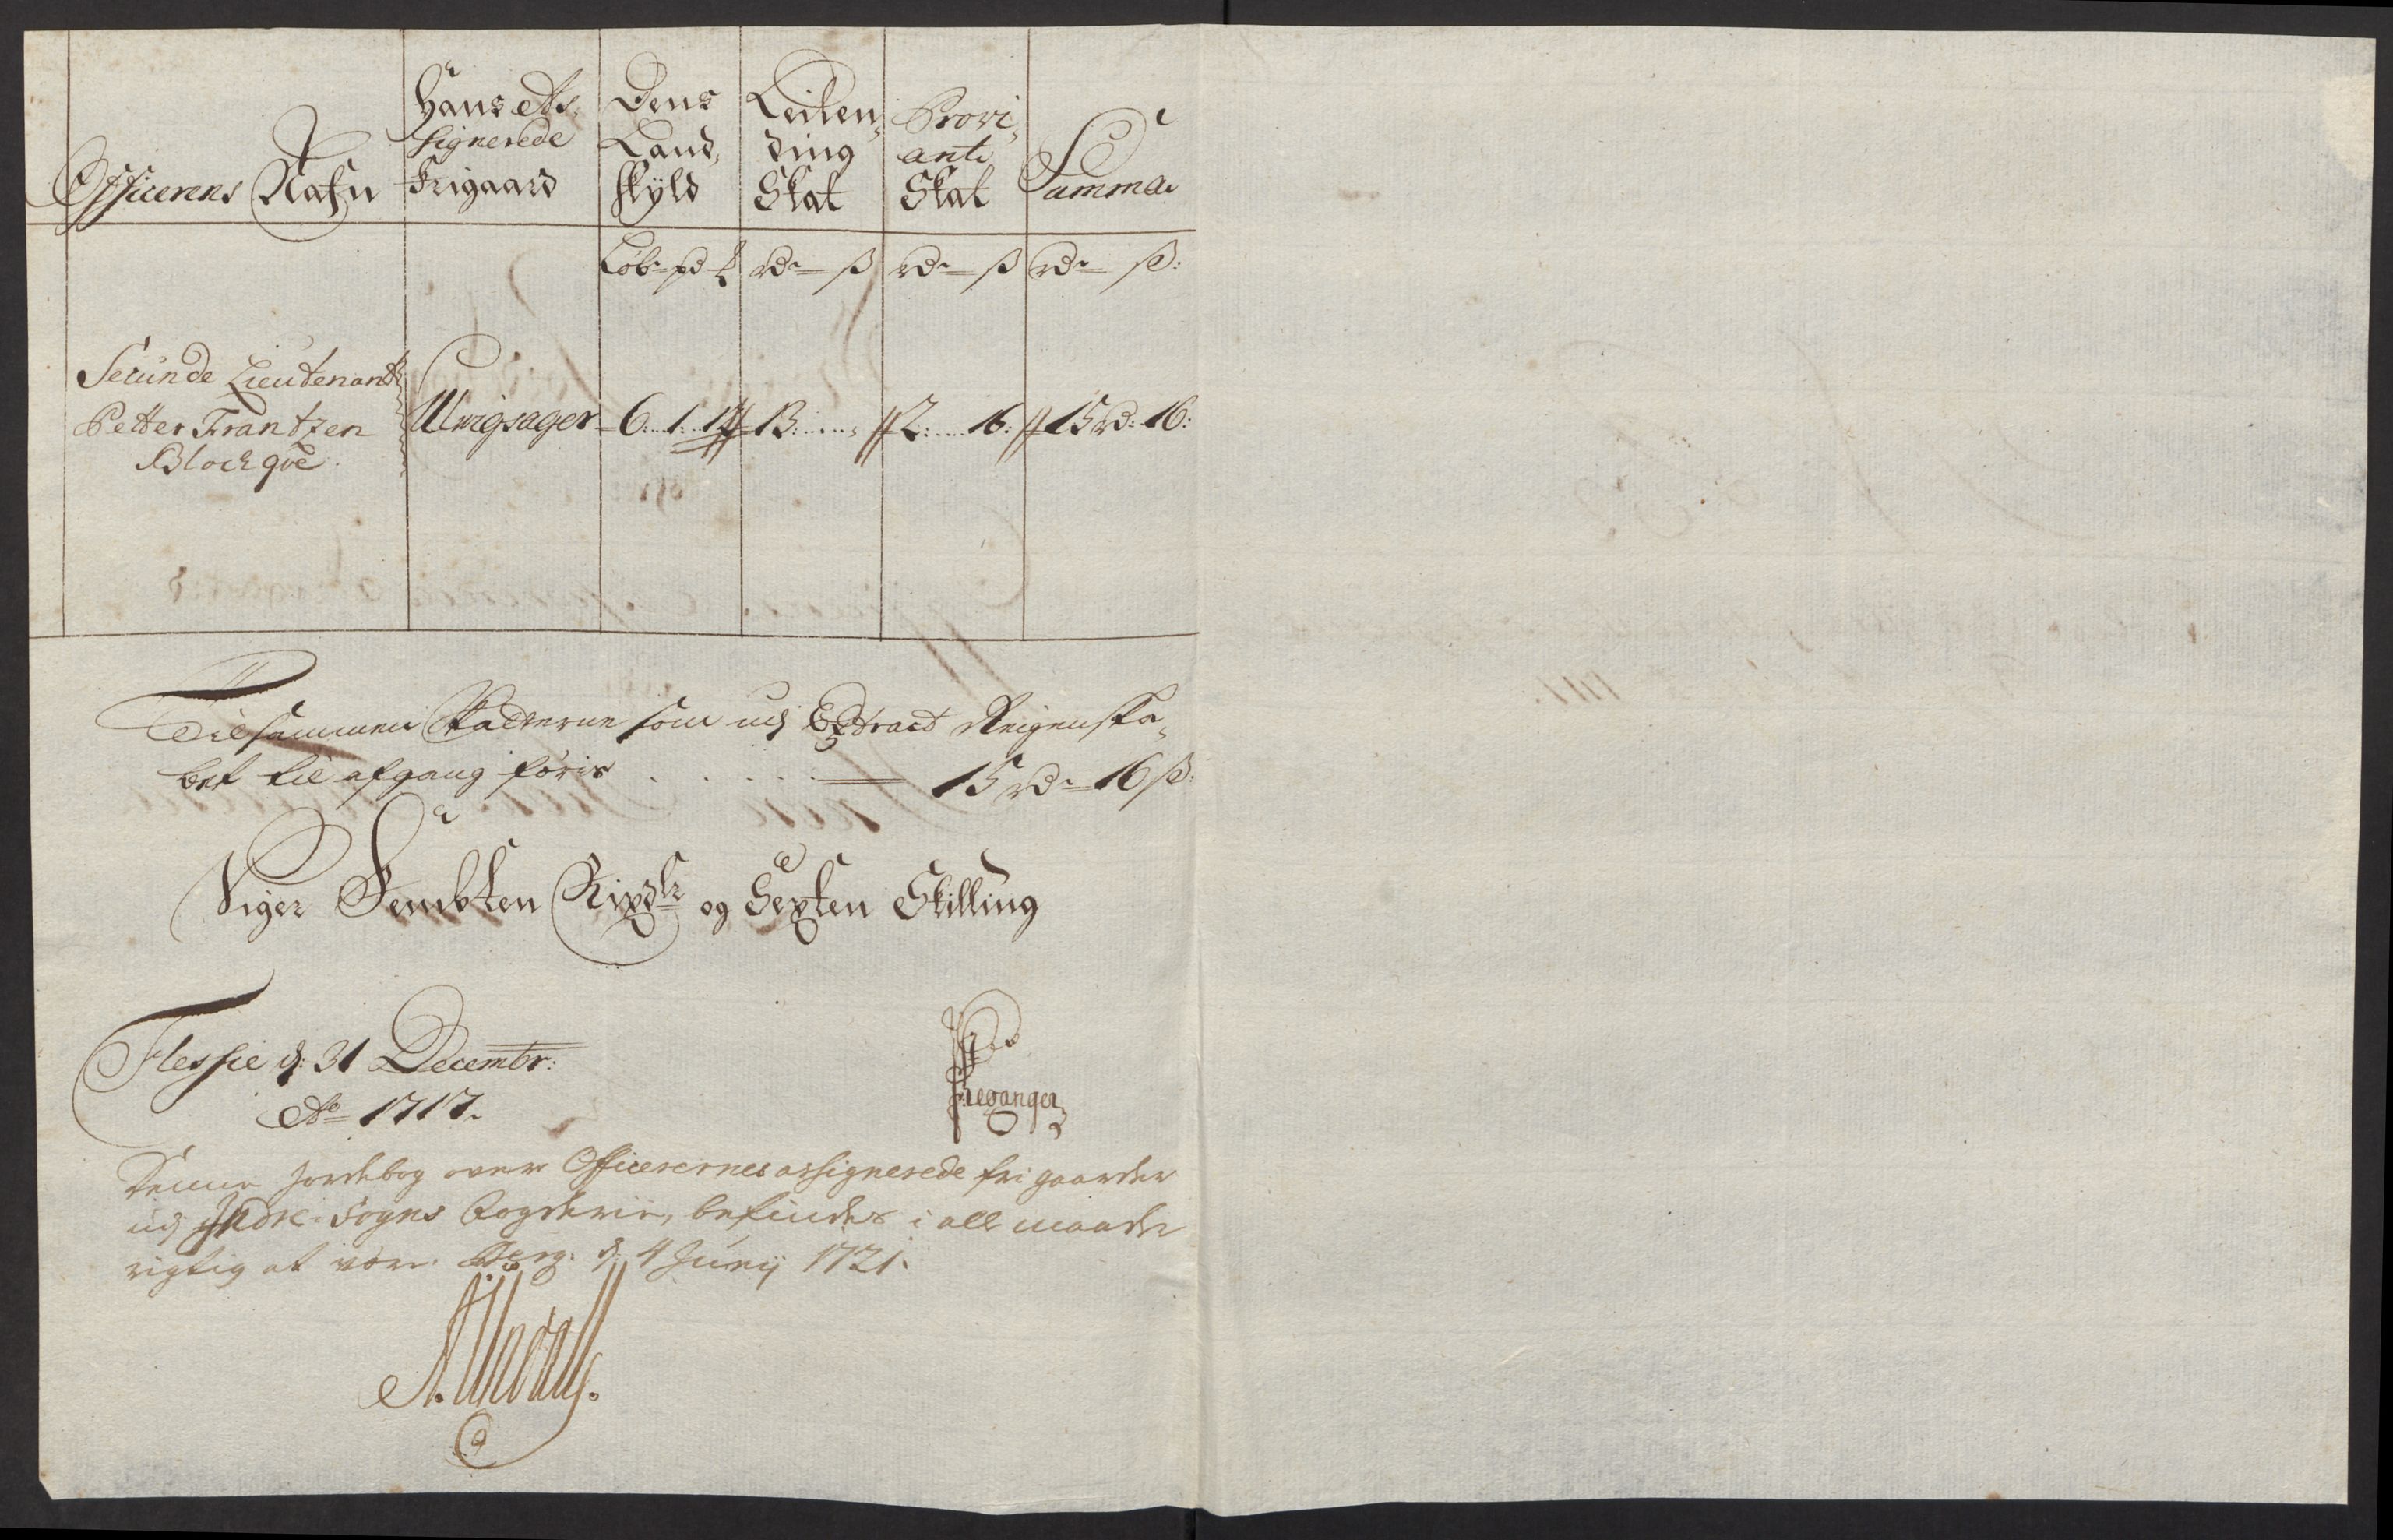 Officerens Nafn
Hans As-
signerede
Frigaard
Dens
Land,
skyld
Leilen,
ding
Skat
Provi,
ant
Skat
Summa
Løb: pd ℔ rdr ß rdr ß rdr ß:
Secunde Lieutenant
Petter Frantzen
Blochgve
Ulvigsager 6: 1: 13: 2: 16: 15 rd: 16:
Tilsammen Skatterne som udj Extract Reigenska,
bet til afgang føris 15 rdr 16 ß:
Siger Fembten Rixdlr og Sexten Skilling
Flessie d: 31 Decembr:
Ao 1717.
Denne Jordebog over Officerernes assignerede fri gaarder
udj Indre Sogns Fogderie, befindes i all maader
rigtig at være. Berg. d. 4 Junij 1721.